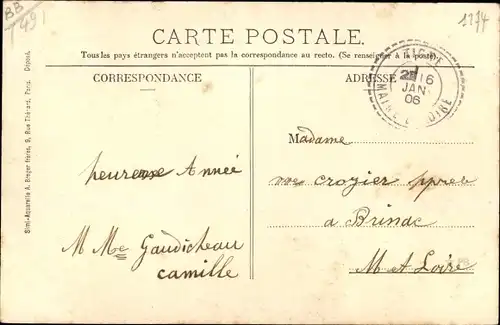 BB
491
1174
CARTE POSTALE.
Tous les pays étrangers n'acceptent pas la correspondance au recto. (Se renseigner à la poste).
CORRESPONDANCE
ADRESSE
TIGNÉ
16
JAN
06
MAINE & LOIRE
heureuse Année
M Mme Gaudicheau
Camille
Madame
vve Crozier ppre
a Brinac
M et Loire
Simi-Aquarelle A. Breger frères, 9, Rue Thénard, Paris. Déposé.